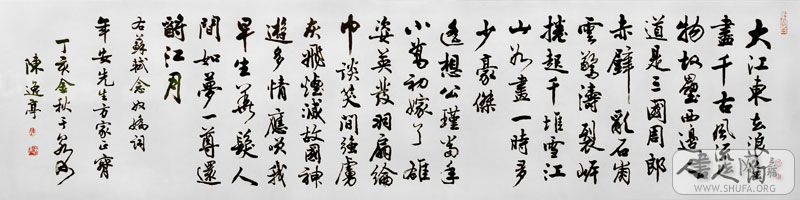 大江東去浪淘
盡千古風流人
物故壘西邊人
道是三國周郎
赤壁亂石崩
雲驚濤裂岸
捲起千堆雪江
山如畫一時多
少豪傑
遙想公瑾當年
小喬初嫁了雄
姿英發羽扇綸
巾談笑間強虜
灰飛煙滅故國神
遊多情應笑我
早生華髮人
間如夢一尊還
酹江月
右蘇軾念奴嬌詞
年安先生方家正
丁亥金秋于
陳逸亭
WWW.SHUFA.ORG